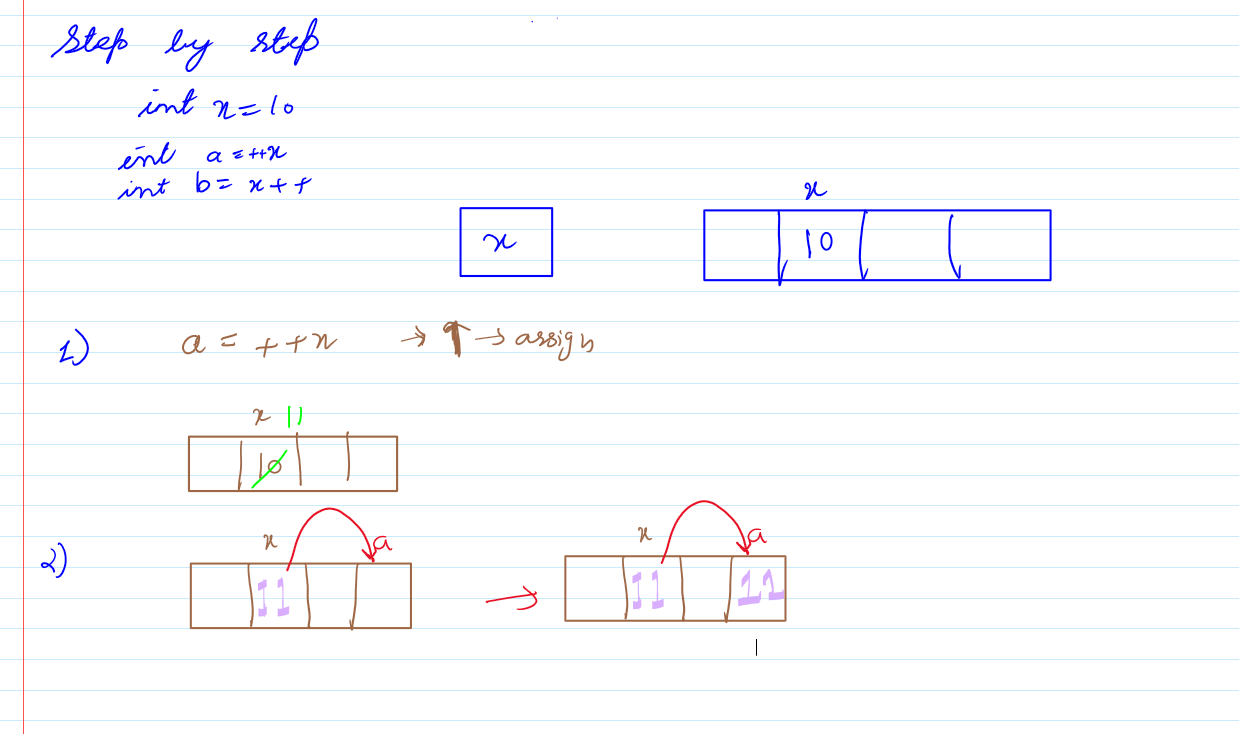 Step by step
int x = 10
int a = ++x
int b = x++
x
x
10
1) a = ++x → ↑ → assign
x 11
10
2) x a
11
→
x a
11 11